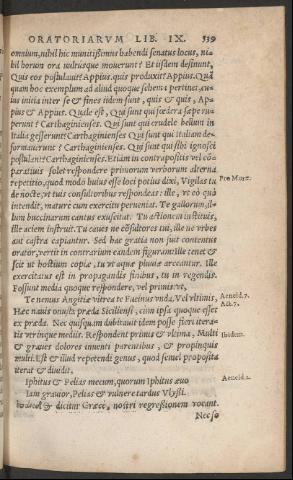 ORATORIARVM LIB. IX. 539
omnium, nihil hic munitissimus habendi senatus locus, ni-
hil horum ora vultusque mouerunt? Et iisdem desinunt,
Quis eos postulauit? Appius. quis produxit? Appius. Quã
quam hoc exemplum ad aliud quoque schema pertinet, cu-
ius initia inter se & fines iidem sunt, quis & quis, Ap-
pius & Appius. Quale est, Qui sunt qui fœdera sæpe ru-
perunt? Carthaginienses. Qui sunt qui crudele bellum in
Italia gesserunt? Carthaginienses. Qui sunt qui Italiam de-
formauerunt? Carthaginienses. Qui sunt qui sibi ignosci
postulant? Carthaginienses. Etiam in contrapositis vel cõ-
paratiuis solet respondere primorum verborum alterna
repetitio, quod modo huius esse loci potius dixi, Vigilas tu
Pro Mure.
de nocte, vt tuis consultoribus respondeas: ille, vt eò quò
intendit, mature cum exercitu perueniat. Te gallorum, il-
lum buccinarum cantus exuscitat. Tu actionem instituis,
ille aciem instruit. Tu caues ne cõsultores tui, ille ne vrbes
aut castra capiantur. Sed hac gratia non fuit contentus
orator, vertit in contrarium eandem figuram: ille tenet &
scit vt hostium copiæ, tu vt aquæ pluuiæ arceantur. Ille
exercitatus est in propagandis finibus, tu in regendis.
Possunt media quoque respondere, vel primis, vt,
Te nemus Angitiæ vitrea te Fucinus vnda. Vel vltimis,
Aeneid. 7.
Act. 7.
Hæc nauis onusta præda Siciliensi, cùm ipsa quoque esset
ex præda. Nec quisquam dubitauit idem posse fieri itera-
tis verinque mediis. Respondent primis & vltima, Multi
Ibidem.
& graues dolores inuenti parentibus, & propinquis
multi. Est & illud repetendi genus, quod semel proposita
iterat & diuidit,
Iphitus & Pelias mecum, quorum Iphitus æuo
Aeneid. 2.
Iam grauior, Pelias & vulnere tardus Vlyssi.
& dicitur Græcè, nostri regressionem vocant.
Nec so